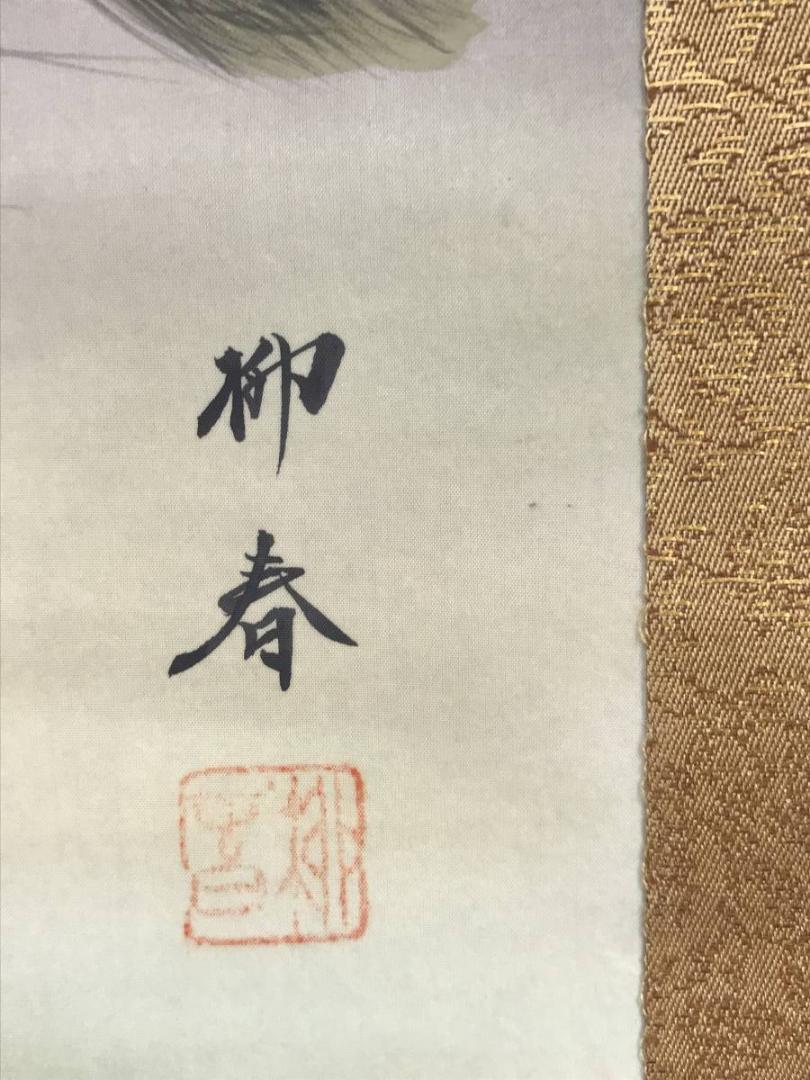 柳
春
柳春